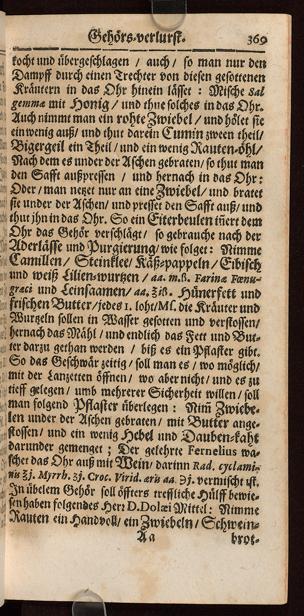 Gehörs-verlurst. 369
kocht und übergeschlagen / auch / so man nur den
Dampff durch einen Trechter von diesen gesottenen
Kräutern in das Ohr hinein lässet : Mische Sal
gemmæ mit Honig / und thue solches in das Ohr.
Auch nimmt man ein rohte Zwiebel / und hölet sie
ein wenig auß / und thut darein Cumin zween theil /
Bigergeil ein Theil / und ein wenig Rauten-öhl /
Nach dem es under der Aschen gebraten / so thut man
den Safft außpressen / und hernach in das Ohr:
Oder / man netzet nur an eine Zwiebel / und bratet
sie under der Aschen / und presset den Safft auß / und
thut jhn in das Ohr. So ein Eiterbeulen iñert dem
Ohr das Gehör verschlägt / so gebrauche nach der
Aderlässe und Purgierung / wie folget: Nimme
Camillen / Steinklee / Käß-pappeln / Eibisch
und weiß Lilien-wurtzen / aa. m.ß. Farinæ Fœnu-
græci und Leinsaamen / aa. ℥iß. Hünerfett und
frischen Butter / jedes 1. loht / Ml. die Kräuter und
Wurtzeln sollen in Wasser gesotten und verstossen /
hernach das Mähl / und endlich das Fett und But-
ter darzu gethan werden / biß es ein Pflaster gibt.
So das Geschwär zeitig / soll man es / wo möglich /
mit der Lanzetten öffnen / wo aber nicht / und es zu
tieff gelegen / umb mehrerer Sicherheit willen / soll
man folgend Pflaster überlegen : Nim̃ Zwiebe-
len under der Aschen gebraten / mit Butter ange-
stossen / und ein wenig Hebel und Dauben-kaht
darunder gemenget ; Der gelehrte Fernelius wa-
schet das Ohr auß mit Wein / darinn Rad. cyclami-
nis ℥j. Myrrh. ʒj. Croc. Virid. æris aa. ℈j. vermischt ist.
In üblem Gehör soll öffters treffliche Hülff bewie-
sen haben folgendes Herr D. Dolæi Mittel: Nimme
Rauten ein Handvoll / ein Zwiebeln / Schwein-
Aa brot-